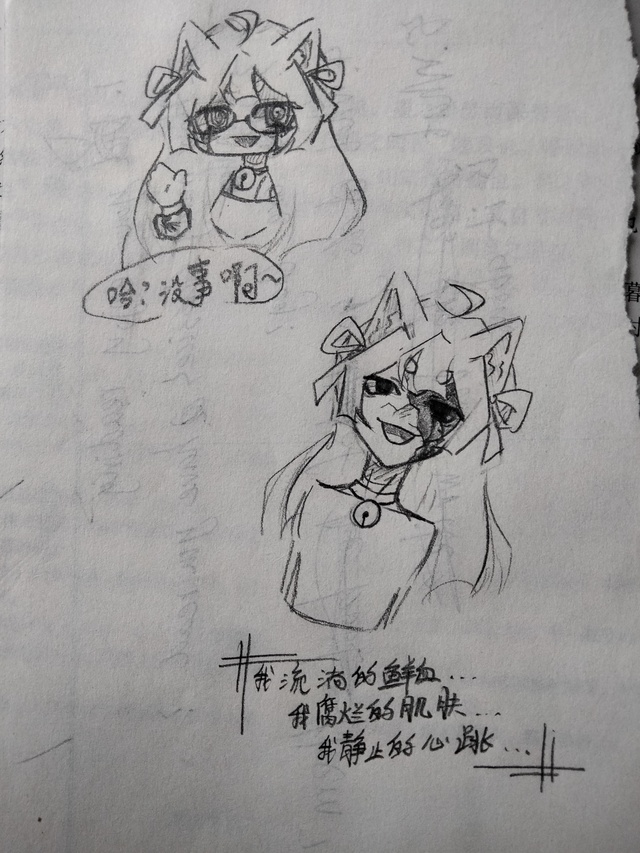 哈？没事啊～
我流淌的鲜血...
我腐烂的肌肤...
我静止的心跳...